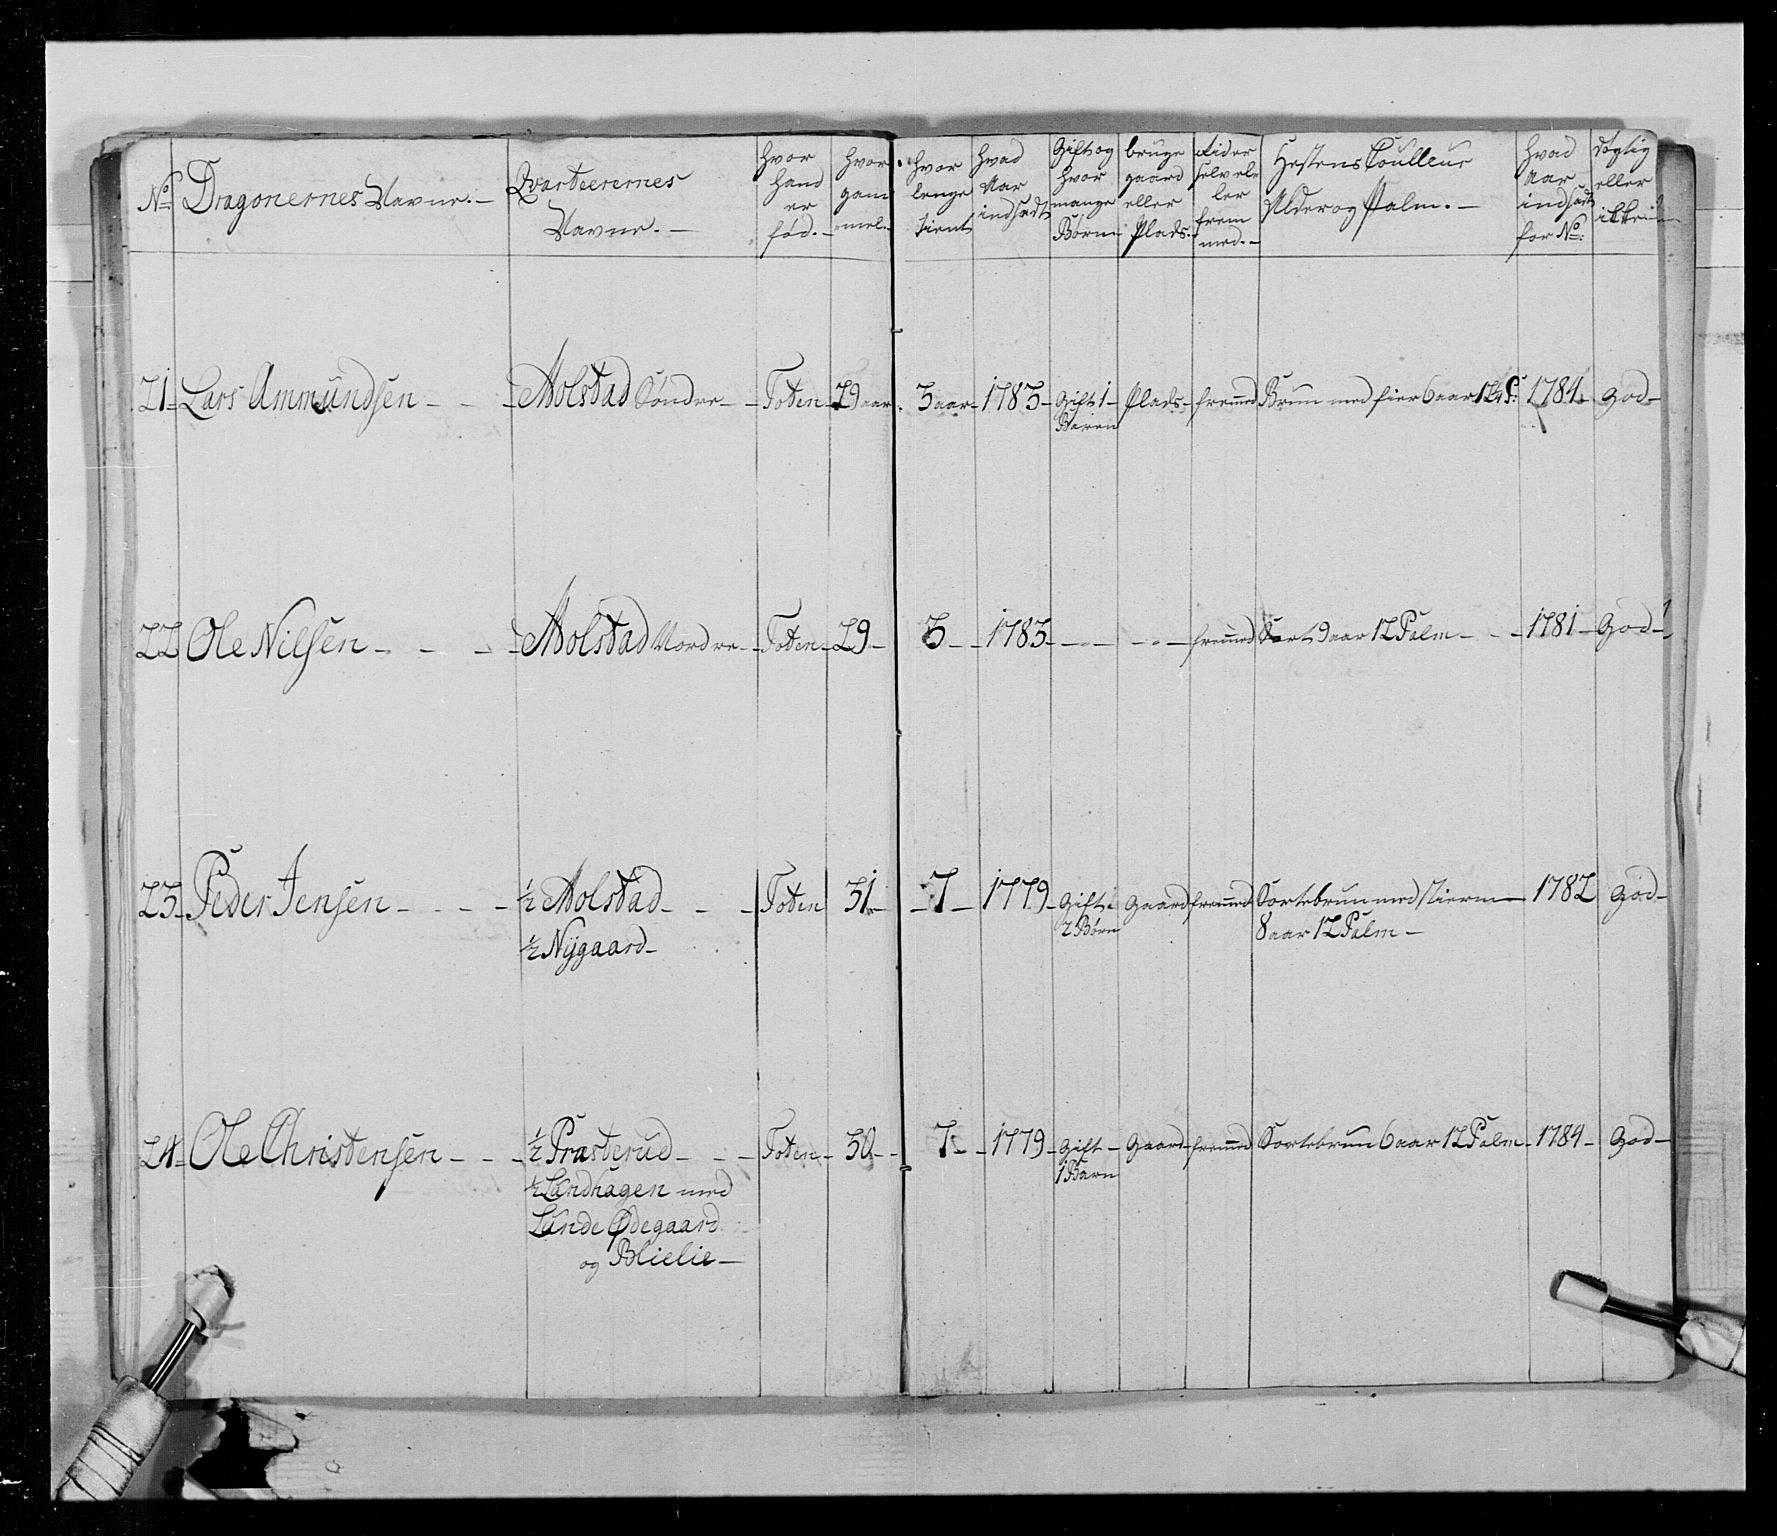 No: Dragonernes Navne.- Qvarteerernes Navne.- hvor hand er fød.- hvor gam mel.- hvor lenge tient hvad Aar indsadt Gift og hvor mange Børn bruge gaard eller Plads. Rider selv el ler frem med.- Hestens Coulleur Alder og Palm.- hvad Aar indsadt for No: døgtig eller ikke
21 Lars Ammundsen - - - Alolstad Søndre - - Toten - 29 aar. 3 aar - 1783 - Gift 1 - Plads - fremmed Brun med stiern 6 aar 12½ P: 1784. God -
Baren
22 Ole Nilsen - - - Alolstad Nordre - - Toten - 29 - 3 - - 1783 - - - - - fremmed Sort 9 aar 12 Palm - - - 1781 - God -
23 Peder Jensen - - - - ½ Alolstad - - - Toten 31 - - 7 - 1779 - Gift - Gaard fremmed Sortebrun med Stiern - 1782 God -
½ Nÿgaard - 2 Børn 8 aar 12 Palm -
24 Ole Christensen - - - ½ Prasterud - - - Toten - 30 - - 7 - - 1779 - Gift - Gaard - fremmed Sortebrun 6 aar 12 Palm - 1784 - God -
½ Landhagen med 1 Barn
Lunde Ødegaard
og Blielie -